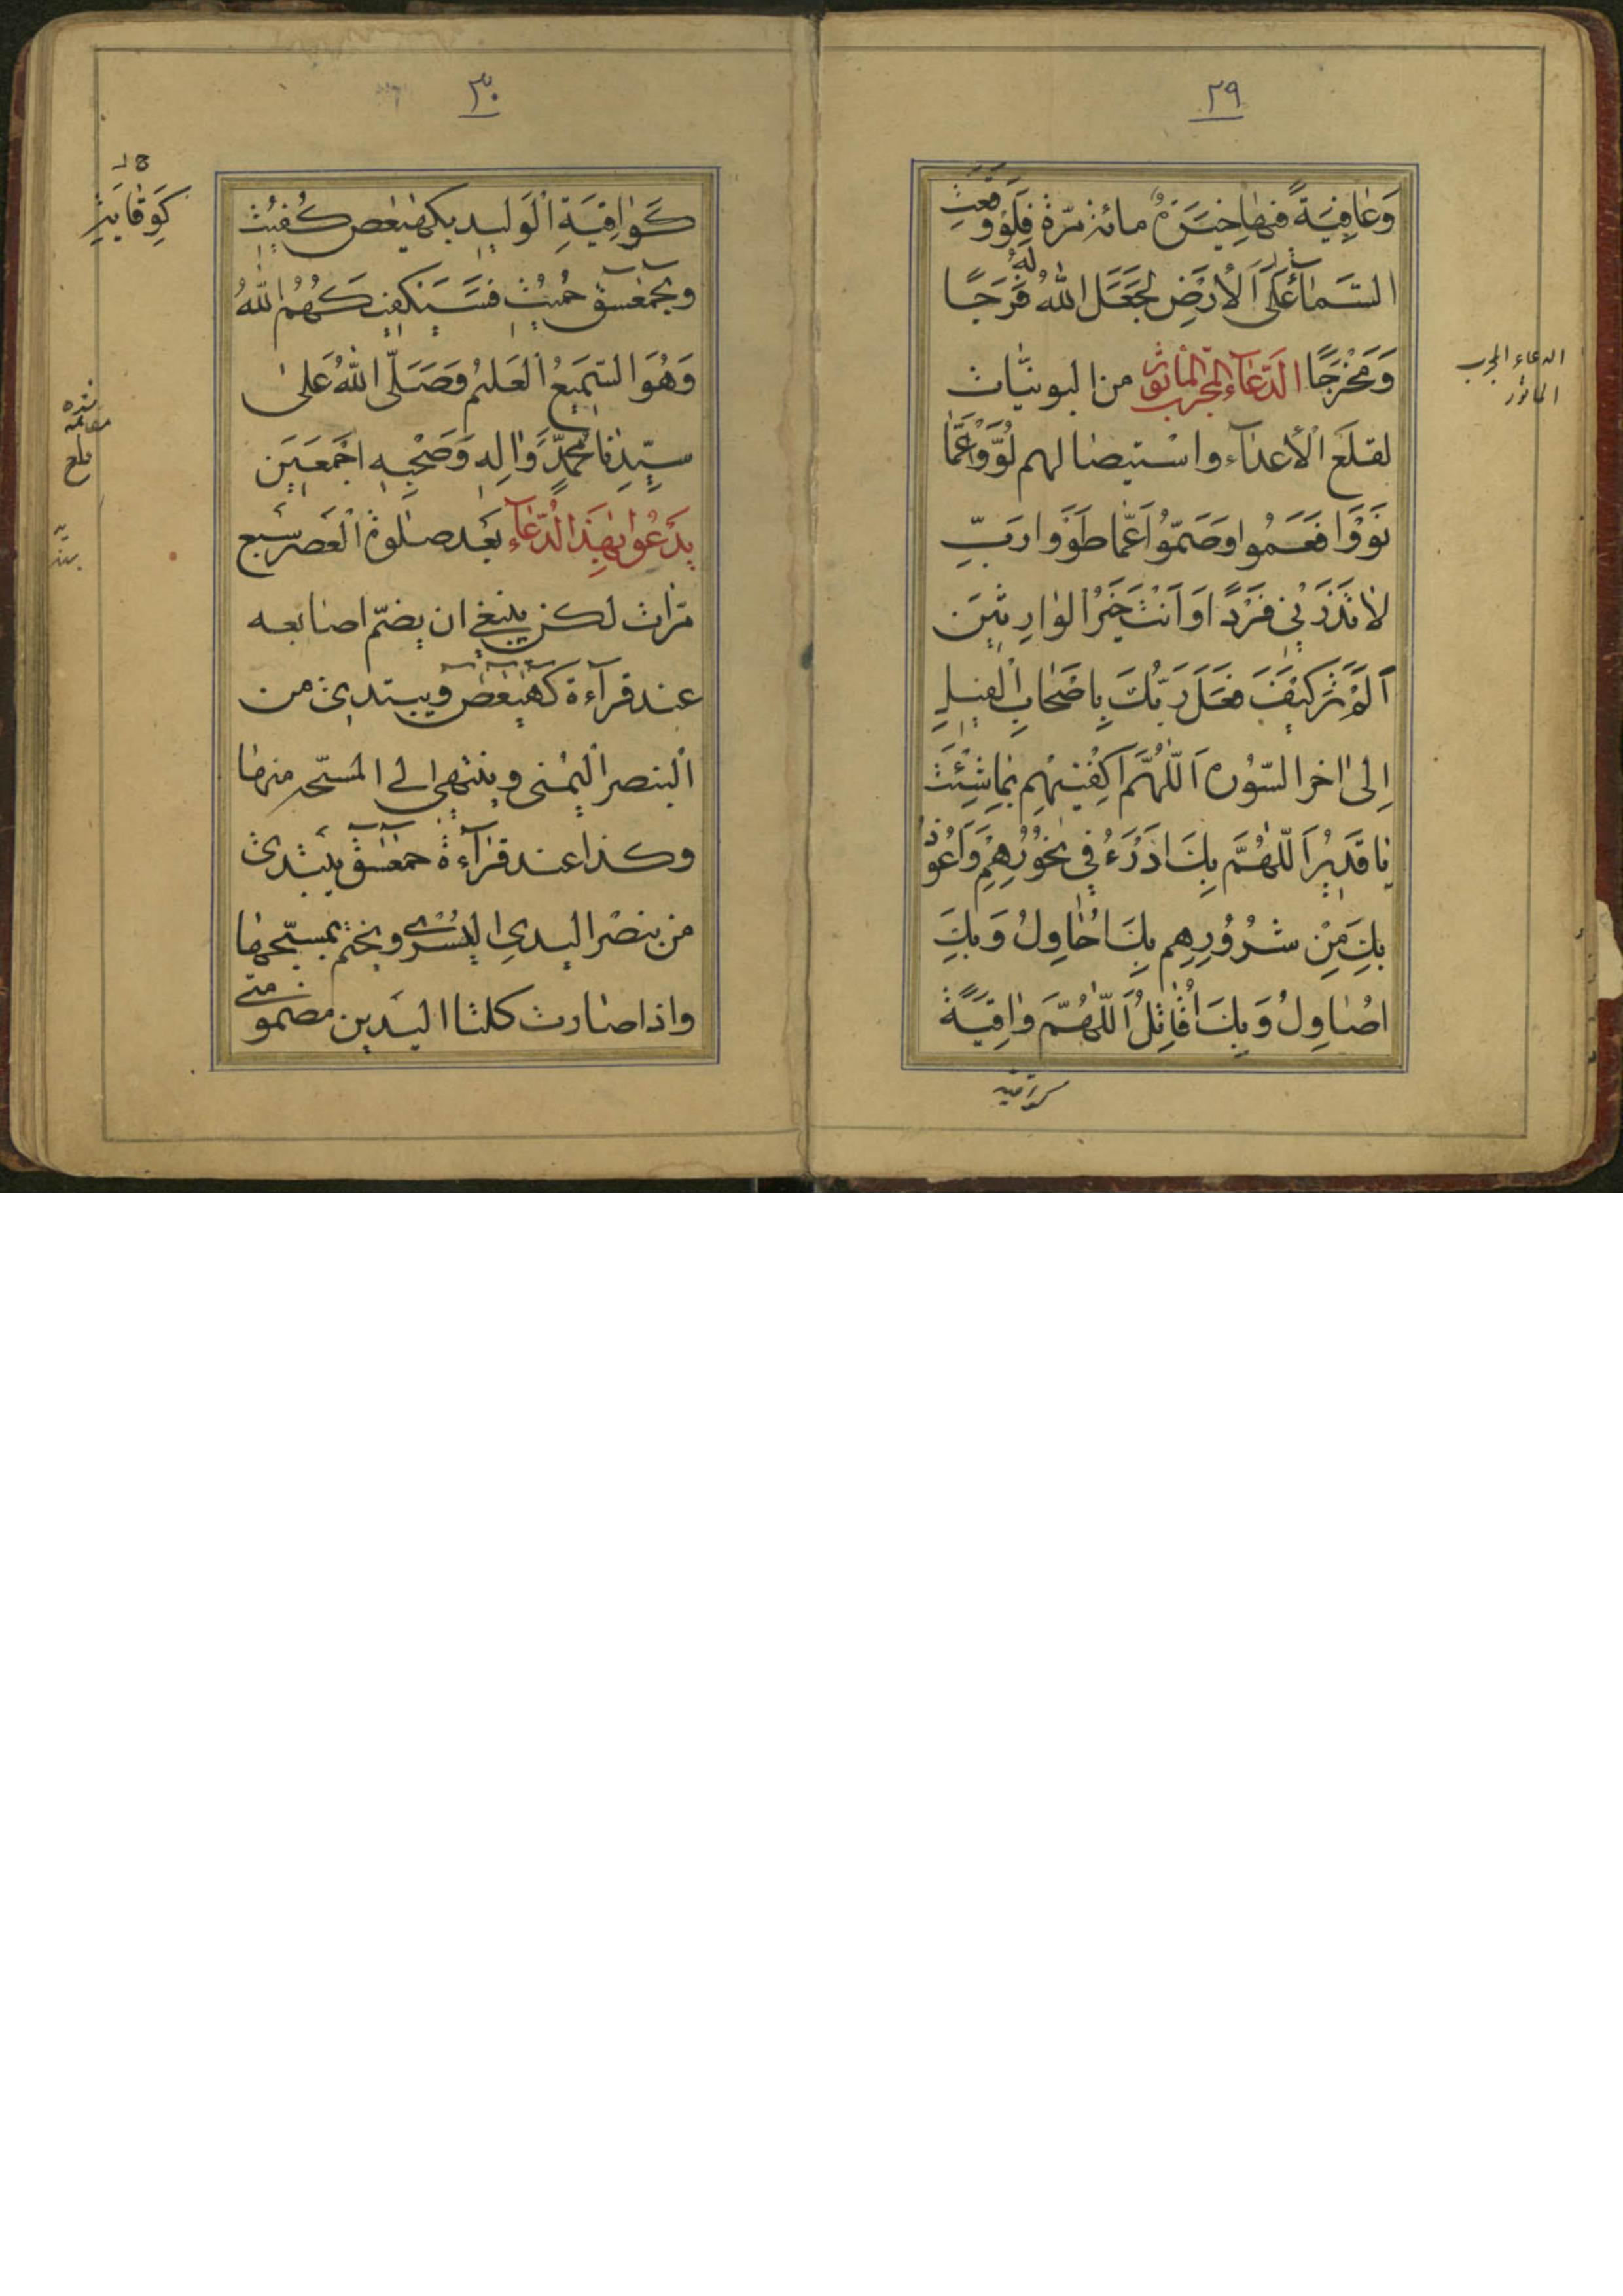 ٢٩
وَعَافِيَةً فيها خِيَرَةٌ مائة مَرّة فَلَوْ وَقَعَتِ
السَّمَاءُ عَلَى الْأَرْضِ لَجَعَلَ اللهُ لَهُ فَرَجًا
وَمَخْرَجًا الدّعَآء المجرب المأثور من البونيّات
لقلع الأعدآء واستيصالهم لَوَّوْا عَمَّا
نَوَوْا فَعَمُوا وَصَمُّوا عَمَّا طَوَوْا رَبِّ
لا تَذَرْنِي فَرْدًا وَأَنْتَ خَيْرُ الوارِثِينَ
أَلَمْ تَرَ كَيْفَ فَعَلَ رَبُّكَ بِأَصْحَابِ الْفِيلِ
إِلى اخر السّورة اَللّٰهُمَّ اكْفِنِيهِمْ بِمَا شِئْتَ
يا قَدِيرُ اَللّٰهُمَّ بِكَ اَدْرَءُ فِي نُحُورِهِمْ وَاَعُوذُ
بِكَ مِنْ شُرُورِهِم بِكَ اُحَاوِلُ وَبِكَ
اُصَاوِلُ وَبِكَ اُقَاتِلُ اَللّٰهُمَّ وَاقِيَةً
كواقية
الدعاء المجرب
الماثور
٣٠
كَوَاقِيَةِ الْوَلِيدِ بكهيعص كُفِيتُ
وبحمعسق حُمِيتُ فَسَيَكْفِيكَهُمُ اللهُ
وَهُوَ السَّمِيعُ الْعَلِيمُ وَصَلَّى اللهُ عَلى
سَيِّدِنَا مُحَمَّدٍ وَالِهِ وَصَحْبِهِ اَجْمَعِينَ
يَدْعُوا بِهَذَا الدُّعَآءِ بَعْد صلوة الْعَصر سَبع
مَرّات لكن ينبغي ان يضمّ اصابعه
عند قرآءة كهيعص ويبتدئ من
الْبنصر الْيُمْنى وينتهي الى المسبّحة منها
وكذا عند قرآءة حمعسق يبتدئ
من بنصر اليد اليُسْرى ويختم بمسبّحها
واذا صارت كلتا اليدين مضمومتي
كَوِقَايَةِ